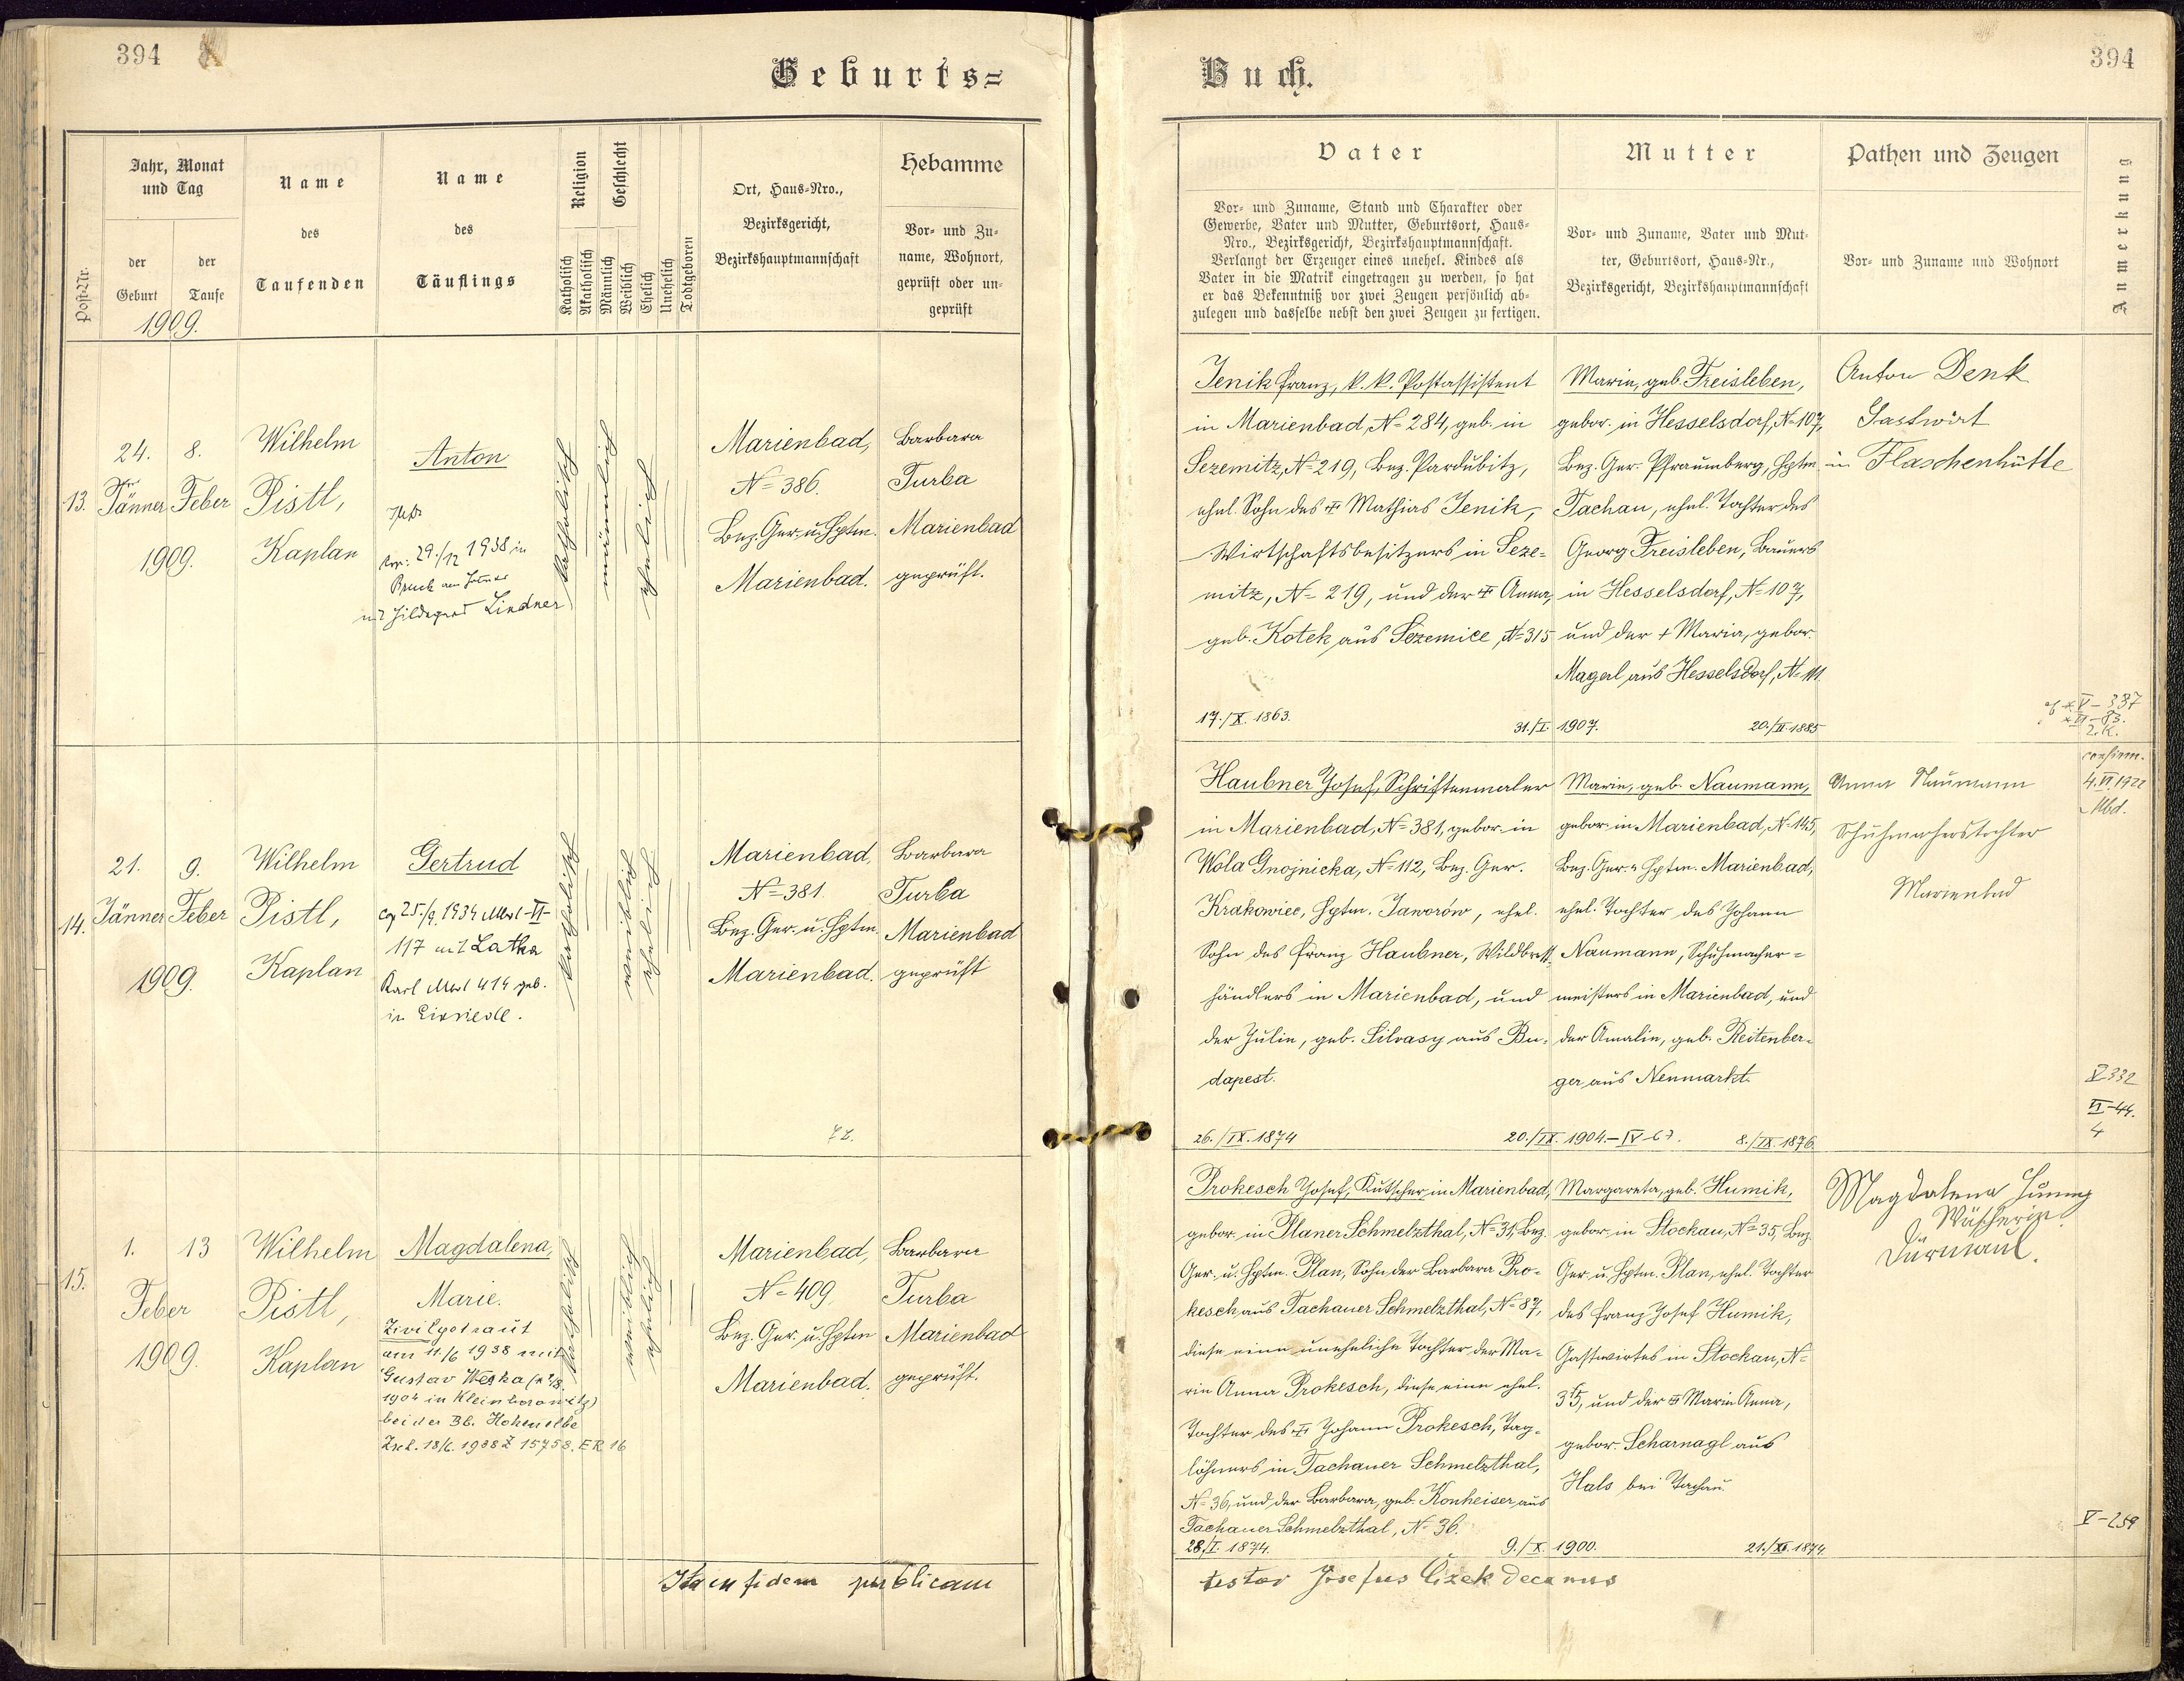 394
Geburts=
Jahr, Monat
und Tag
Name
Name
Religion
Geschlecht
Ort, Haus-Nro.,
Hebamme
Post-Nr.
der
Geburt
der
Taufe
des
Taufenden
des
Täuflings
Katholisch
Akatholisch
Männlich
Weiblich
Ehelich
Unehelich
Todtgeboren
Bezirksgericht,
Bezirkshauptmannschaft
Vor- und Zu-
name, Wohnort,
geprüft oder un-
geprüft
1909.
13.
24.
Jänner
1909.
8.
Feber
Wilhelm
Pistl,
Kaplan
Anton
29./12 1938 in
Bruck
Hildegard Lindner
katholisch
männlich
ehelich
Marienbad,
N= 386.
Bez. Ger. u. Hptm.
Marienbad.
Barbara
Turba
Marienbad
geprüft.
14.
21.
Jänner
1909.
9.
Feber
Wilhelm
Pistl,
Kaplan
Gertrud
cop 25./9. 1934 Mbd VI-
117 mit Latka
Karl Mbd 414 geb.
in Einsiedl.
katholisch
weiblich
ehelich
Marienbad,
N= 381.
Bez. Ger. u. Hptm.
Marienbad.
Barbara
Turba
Marienbad
geprüft
15.
1.
13
Feber
1909.
Wilhelm
Pistl,
Kaplan
Magdalena,
Marie.
Zivilgetraut
am 11./6 1938 mit
Gustav Weska
1904 in Kleinborowitz)
bei der Bb. Hohenelbe
Zsch. 18/6. 1938 Z 15753. ER 16
katholisch
weiblich
ehelich
Marienbad,
N= 409.
Bez. Ger. u. Hptm
Marienbad.
Barbara
Turba
Marienbad
geprüft.
Ita in fidem publicam
Buch.
394
Vater
Mutter
Pathen und Zeugen
Anmerkung
Vor- und Zuname, Stand und Charakter oder
Gewerbe, Vater und Mutter, Geburtsort, Haus-
Nro., Bezirksgericht, Bezirkshauptmannschaft.
Verlangt der Erzeuger eines unehel. Kindes als
Vater in die Matrik eingetragen zu werden, so hat
er das Bekenntniß vor zwei Zeugen persönlich ab-
zulegen und dasselbe nebst den zwei Zeugen zu fertigen.
Vor- und Zuname, Vater und Mut-
ter, Geburtsort, Haus-Nr.,
Bezirksgericht, Bezirkshauptmannschaft
Vor- und Zuname und Wohnort
Jenik Franz, k. k. Postassistent
in Marienbad, N= 284, geb. in
Sezemitz, N= 219, Bez. Pardubitz,
ehel. Sohn des † Mathias Jenik,
Wirtschaftsbesitzers in Seze-
mitz, N= 219, und der † Anna,
geb. Kotek aus Sezemice, N= 315
17./X. 1863.
31./I. 1907.
Marie, geb. Freisleben,
gebor. in Hesselsdorf, N= 107,
Bez. Ger. Pfraumberg, Hptm.
Tachau, ehel. Tochter des
Georg Freisleben, Bauers
in Hesselsdorf, N= 107,
und der † Maria, gebor.
Magerl aus Hesselsdorf, N= 111.
Anton Denk
Gastwirt
in Flaschenhütte
V-337
2. K.
Haubner Josef, Schriftenmaler
in Marienbad, N= 381, gebor. in
Wola Gnojnicka, N= 112, Bez. Ger.
Krakowiec, Hptm. Jaworów, ehel.
Sohn des Franz Haubner, Wildbret-
händlers in Marienbad, und
der Julie, geb. Silvasy aus Bu-
dapest.
26./IX. 1874
20./IX. 1904.
8./IX. 1876.
Marie, geb. Naumann,
gebor. in Marienbad, N= 145,
Bez. Ger. u. Hptm. Marienbad,
ehel. Tochter des Johann
Naumann, Schuhmacher=
meisters in Marienbad, und
der Amalie, geb. Reitenber-
ger aus Neumarkt.
Anna Naumann
Schuhmacherstochter
Marienbad
confirm.
4.VI.1922
Mbd.
V 332
VI-44.
4
Prokesch Josef, Kutscher in Marienbad,
gebor. in Planer Schmelzthal, N= 31, Bez.
Ger. u. Hptm. Plan, Sohn der Barbara Pro-
kesch aus Tachauer Schmelzthal, N= 87,
diese eine uneheliche Tochter der Ma-
rie Anna Prokesch, diese eine ehel.
Tochter des † Johann Prokesch, Tag-
löhners in Tachauer Schmelzthal,
N= 36, und der Barbara, geb. Konheiser aus
Tachauer Schmelzthal, N= 36.
28./I. 1874.
9./X. 1900.
Margareta, geb. Humik,
gebor. in Stockau, N= 35, Bez.
Ger. u. Hptm. Plan, ehel. Tochter
des Franz Josef Humik,
Gastwirtes in Stockau, N=
35, und der † Marie Anna,
gebor. Scharnagl aus
Hals bei Tachau.
Magdalena
Wäscherin
Dürmaul.
V-259
testor Josefus Čížek decanus